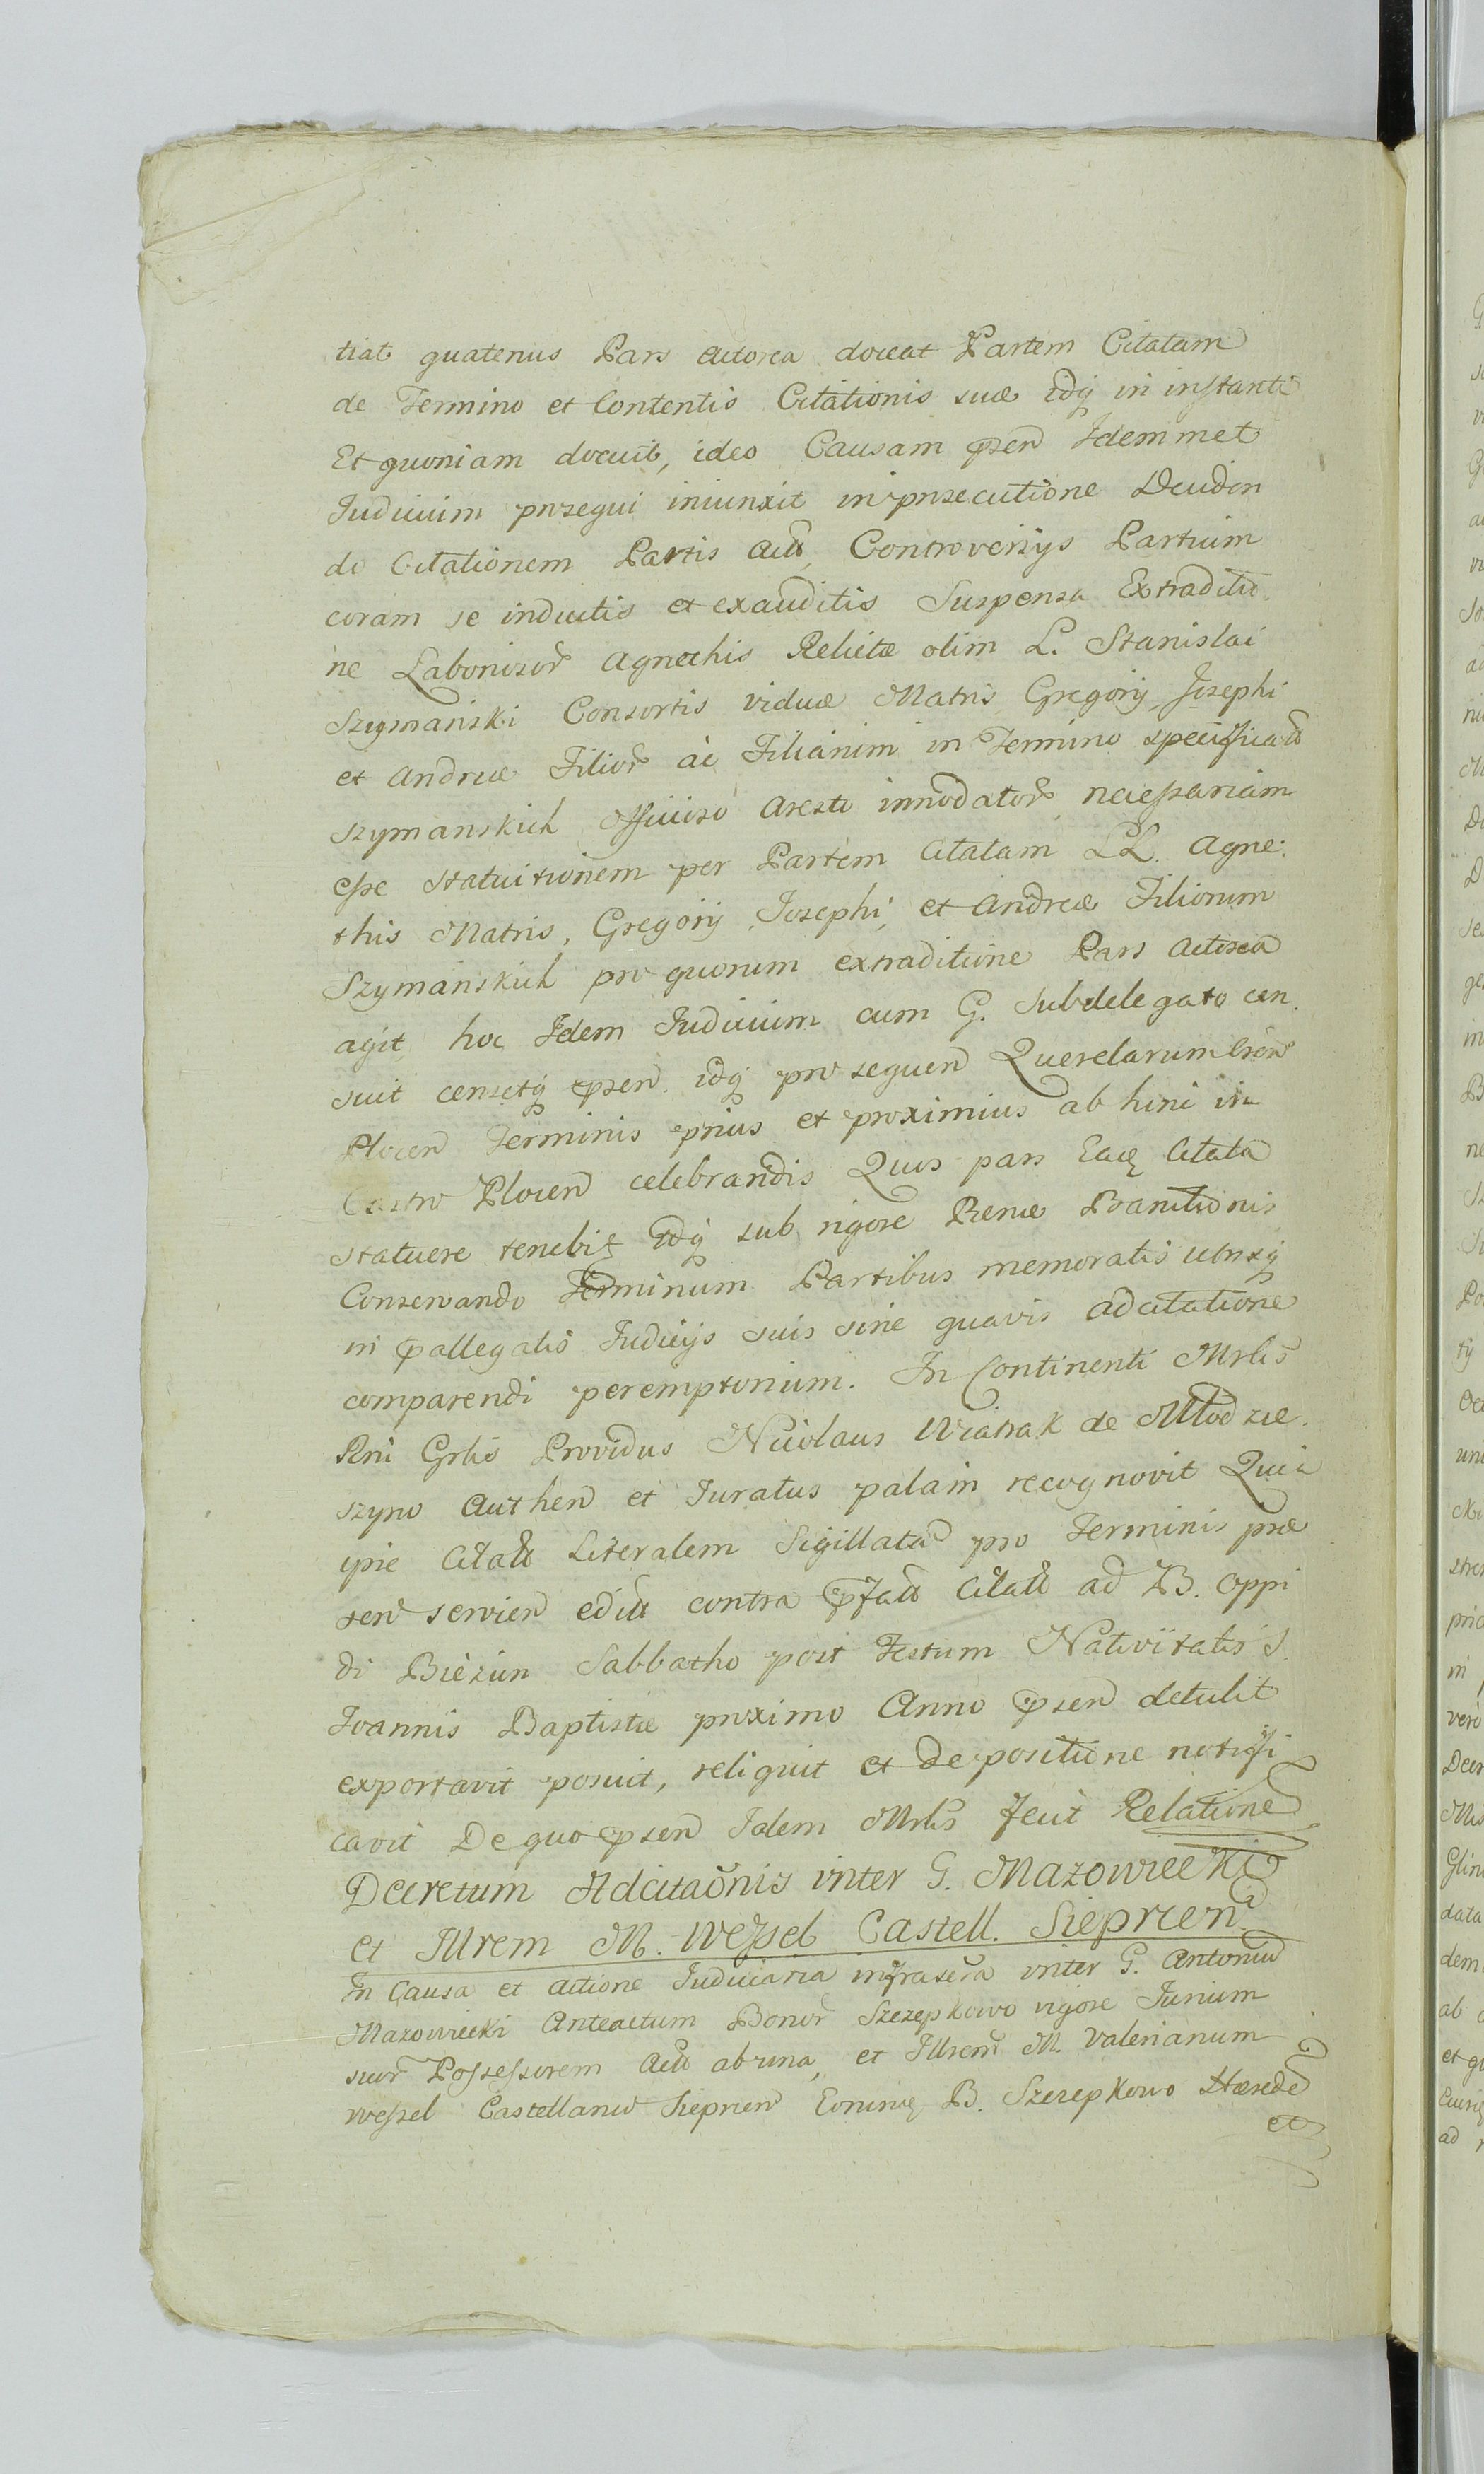 tiat quatenus Pars Actorea doceat Partem Citatam
de Termino et Contentis Citationis suæ idq in instanti
Et quoniam docuit, ideo Causam pñsen Idemmet
Iudicium prosequi iniunxit in prosecutione Deciden
do Citationem Partis Act, Controversijs Partium
coram se inductis et exauditis Suspensa Extraditio
ne Laboriosor Agnethis Relictæ olim L. Stanislai
Szymanski Consortis viduæ Matris Gregorij Josephi
et Andreæ Filior ac Filiarum in Termino specificat
Szymanskich Officiose Aresto innodator necessariam
esse statuitionem per Partem Citatam LL. Agne:
this Matris, Gregorij, Josephi, et Andreæ Filiorum
Szymanskich pro quorum extraditione Pars Actorea
agit, hoc Idem Iudicium cum G. Subdelegato cen
suit censetq psen idq pro sequen Querelarum
Plocen Terminis prius et proximius ab hinc in
Castro Plocen celebrandis Quos pars Eadem Citata
statuere tenebit idq sub rigore Pænæ Banitionis
Conservando Terminum Partibus memoratis utrisq
in pallegatis Iudicijs suis sine quavis adcitatione
comparendi peremptorium. In Continenti Mrlis
Rni Grlis Providus Nicolaus Wiatrak de Młodzie.
szyno Authen et Iuratus palam recognovit Quia
ipse Citatt Literalem Sigillatã pro Terminis præ
sen servien edita contra Citatt ad B. Oppi
di Bieżun Sabbatho post Festum Nativitatis S.
Ioannis Baptistæ proximo Anno psen detulit
exportavit posuit, reliquit et de positione notifi
cavit De quo psen Idem Mrlis fecit Relatione
Decretum Adcitaõnis inter G. Mazowiecki
et Illrem M. Wessel Castell. Sieprcen
In Causa et Actione Iudiciaria infrascra inter G. Antoniu
Mazowiecki Anteactum Bonor Szczepkowo vigore Iurium
suor Possessorem Act ab una, et Illrem M. Valerianum
Wessel Castellanu Sieprcen B. Szczepkowo Hærede
et